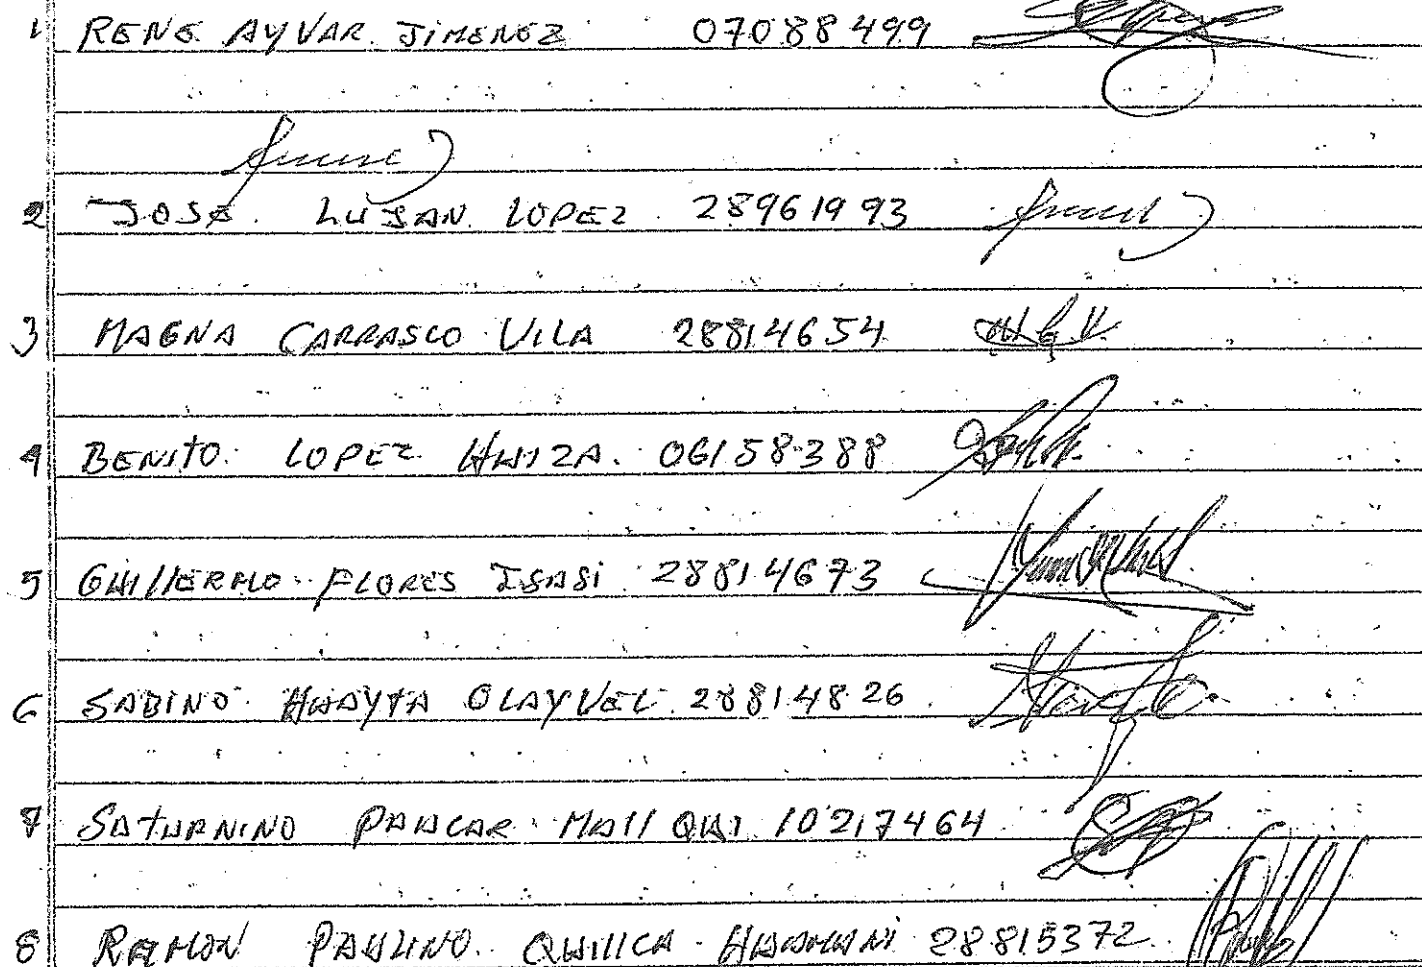 1 RENE AYVAR JIMENEZ 07088499
2 JOSE LUJAN LOPEZ 28961993
3 MAGNA CARRASCO VILA 28814654
4 BENITO LOPEZ HUIZA 06158388
5 GUILLERMO FLORES ISASI 28814673
6 SABINO HUAYTA OLAYVEL 28814826
7 SATURNINO PAUCAR MALLQUI 10217464
8 RAMON PAULINO QUILLCA HUAMANI 28815372